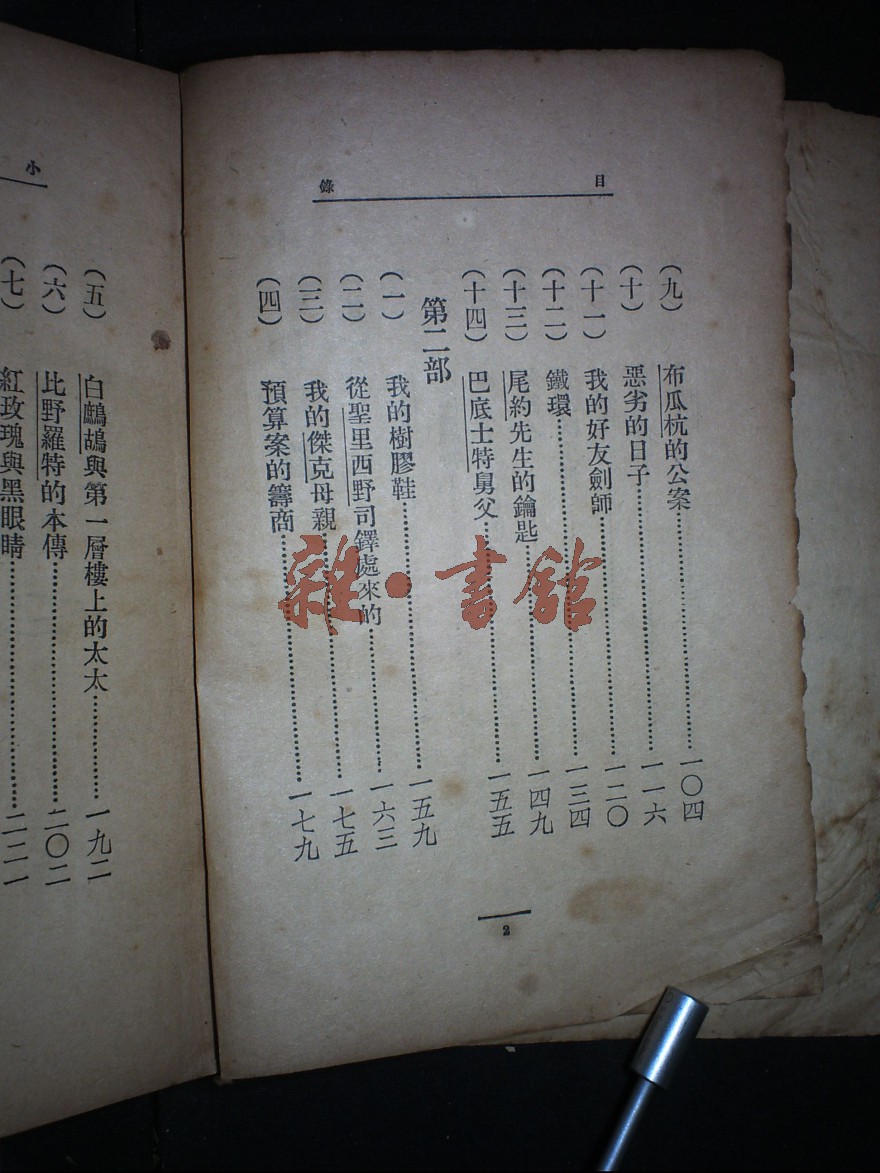 目錄
(九) 布瓜杭的公案……一〇四
(十) 惡劣的日子……一一六
(十一) 我的好友劍師……一二〇
(十二) 鐵環……一三四
(十三) 尾約先生的鑰匙……一四九
(十四) 巴底士特舅父……一五五
第二部
(一) 我的樹膠鞋……一五九
(二) 從聖里西野司鐸處來的……一六三
(三) 我的傑克母親……一七五
(四) 預算案的籌商……一七九
2
小
(五) 白鷓鴣與第一層樓上的太太……一九二
(六) 比野羅特的本傳……二〇二
(七) 紅玫瑰與黑眼睛……二二一
雜·書館